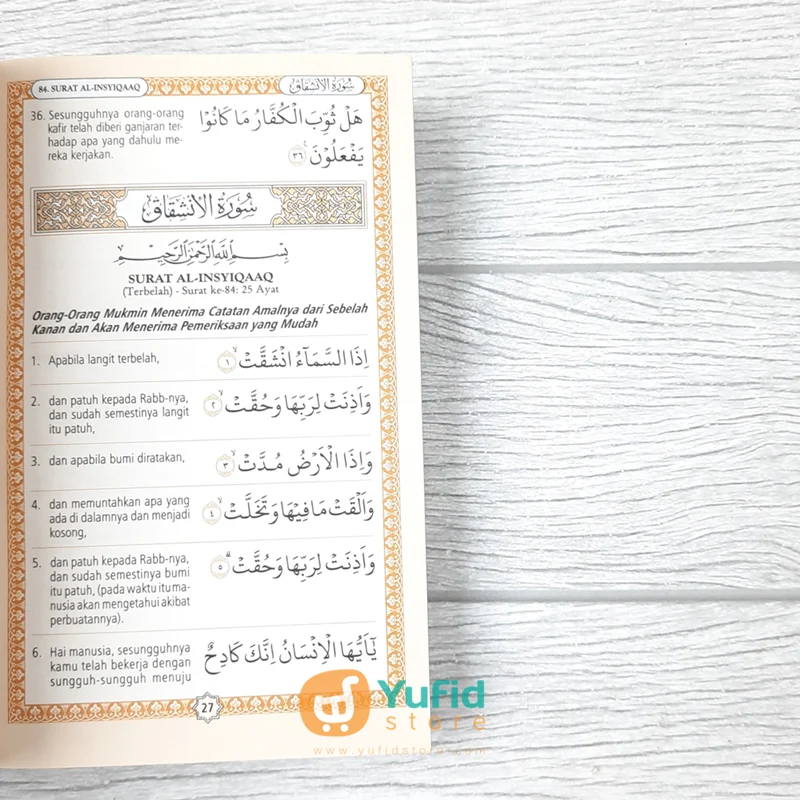 84. SURAT AL-INSYIQAAQ سورة الانشقاق
36. Sesungguhnya orang-orang
kafir telah diberi ganjaran ter-
hadap apa yang dahulu me-
reka kerjakan.
هَلْ ثُوِّبَ الْكُفَّارُ مَا كَانُوْا
يَفْعَلُوْنَ ۝٣٦
سورة الانشقاق
بِسْمِ اللهِ الرَّحْمٰنِ الرَّحِيْمِ
SURAT AL-INSYIQAAQ
(Terbelah) - Surat ke-84: 25 Ayat
Orang-Orang Mukmin Menerima Catatan Amalnya dari Sebelah
Kanan dan Akan Menerima Pemeriksaan yang Mudah
1. Apabila langit terbelah,
اِذَا السَّمَآءُ انْشَقَّتْۙ ۝١
2. dan patuh kepada Rabb-nya,
dan sudah semestinya langit
itu patuh,
وَاَذِنَتْ لِرَبِّهَا وَحُقَّتْۙ ۝٢
3. dan apabila bumi diratakan,
وَاِذَا الْاَرْضُ مُدَّتْۙ ۝٣
4. dan memuntahkan apa yang
ada di dalamnya dan menjadi
kosong,
وَاَلْقَتْ مَا فِيْهَا وَتَخَلَّتْۙ ۝٤
5. dan patuh kepada Rabb-nya,
dan sudah semestinya bumi
itu patuh, (pada waktu itu ma-
nusia akan mengetahui akibat
perbuatannya).
وَاَذِنَتْ لِرَبِّهَا وَحُقَّتْۗ ۝٥
6. Hai manusia, sesungguhnya
kamu telah bekerja dengan
sungguh-sungguh menuju
يٰٓاَيُّهَا الْاِنْسَانُ اِنَّكَ كَادِحٌ
27
Yufid
store
www.yufidstore.com